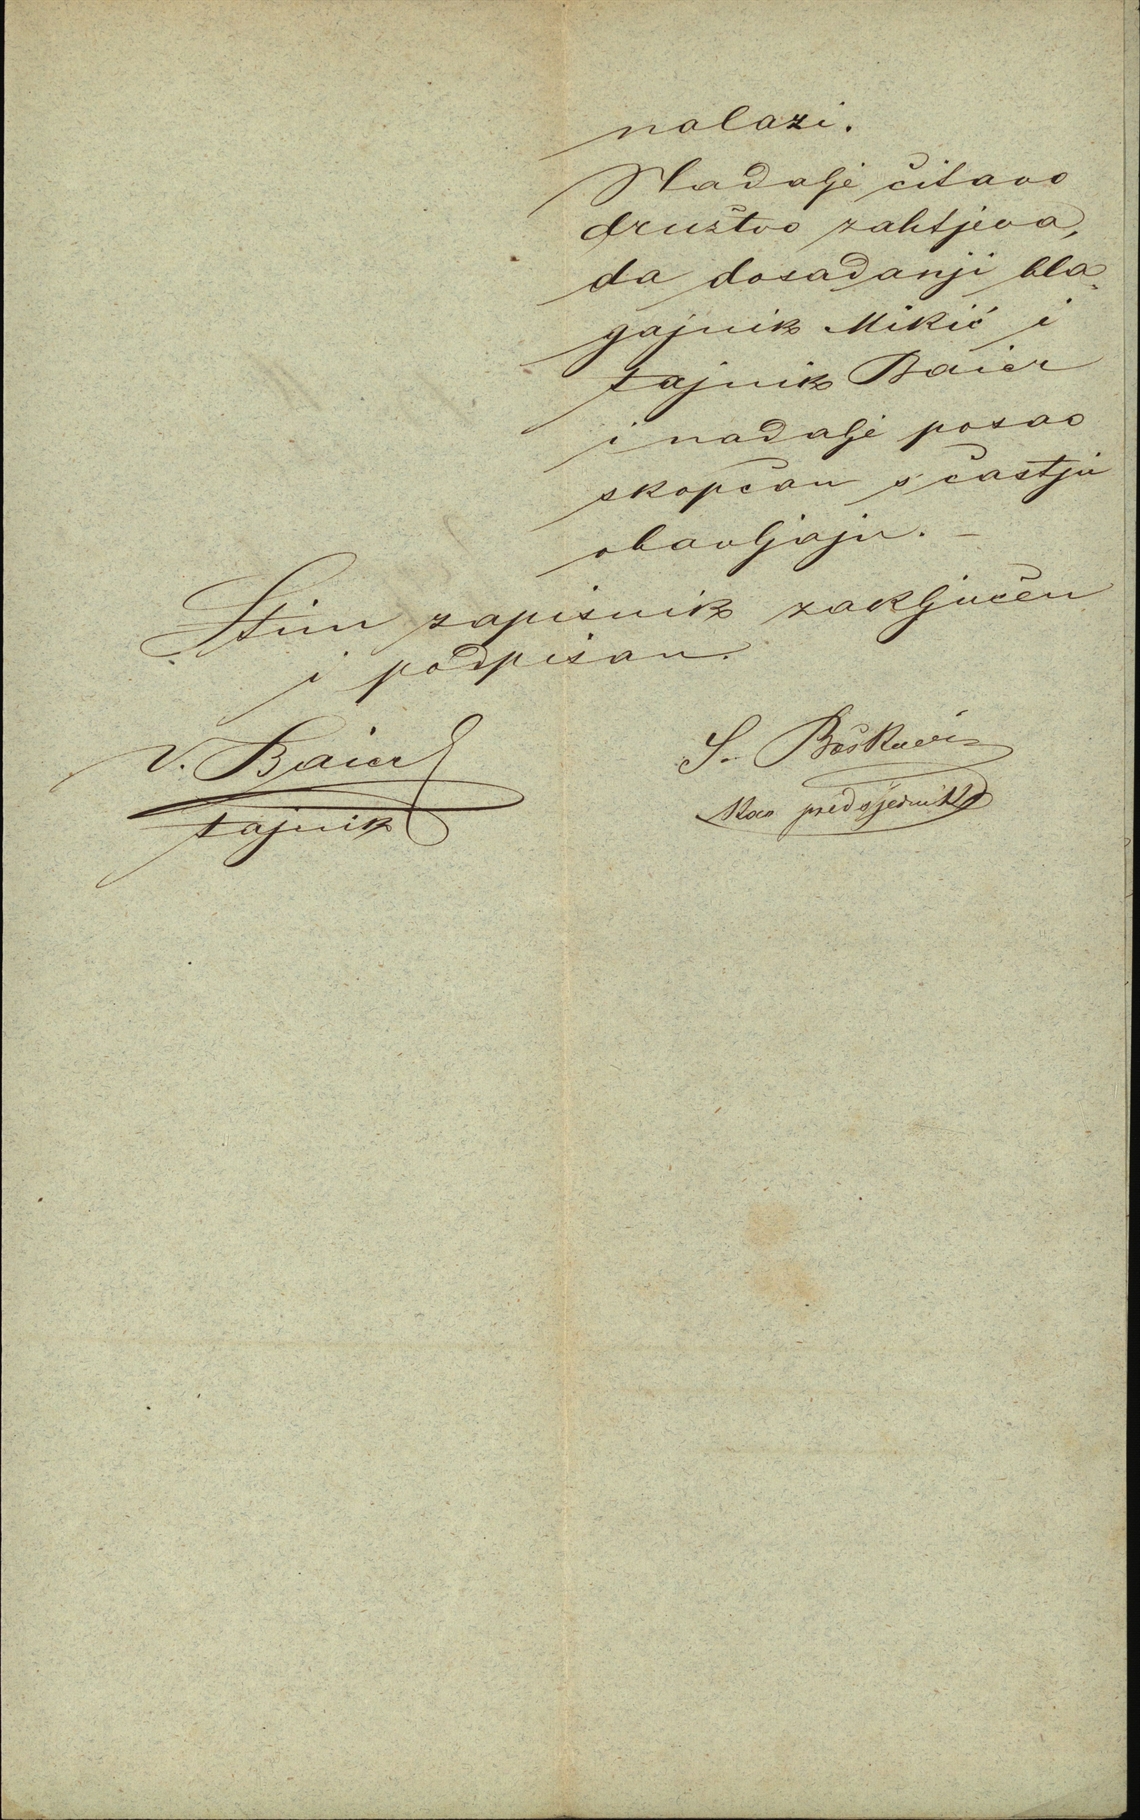 nalazi.
Nadalje čitavo
družtvo zahtjeva,
da dosadanji bla-
gajnik Mikić i
tajnik Baier
i nadalje posao
skopčan s častju
obavljaju. –
Stim zapisnik zaključen
i podpisan.
V. Baier
tajnik
S.
kao predsjednik